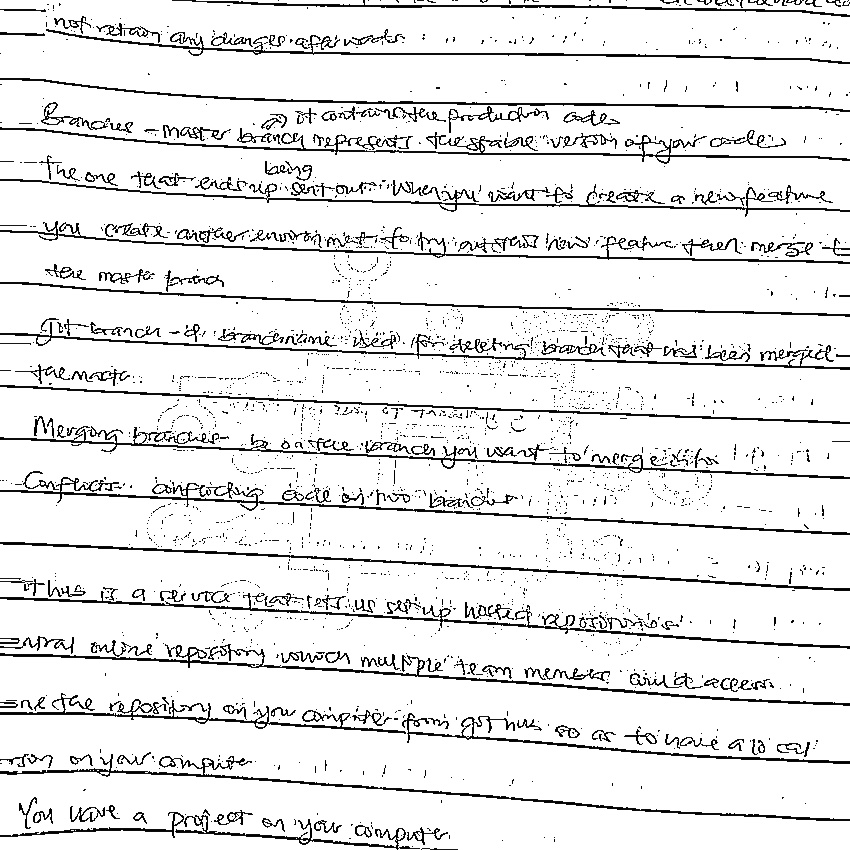 not retain any changes afterwards
it contains the production code
Branches - master branch represents the stable version of your code
being
The one that ends up sent out. When you want to create a new feature
you create another environment to try out this new feature then merge t
the master branch
Git branch -d branchname used for deleting branch that has been merged
the master
Merging branches - be on the branch you want to merge
Conflicts conflicting code on two branches
ithub is a service that lets us set up hosted repositories
entral online repository which multiple team members could access
one the repository on your computer from github so as to have a local
rsion on your computer
You have a project on your computer